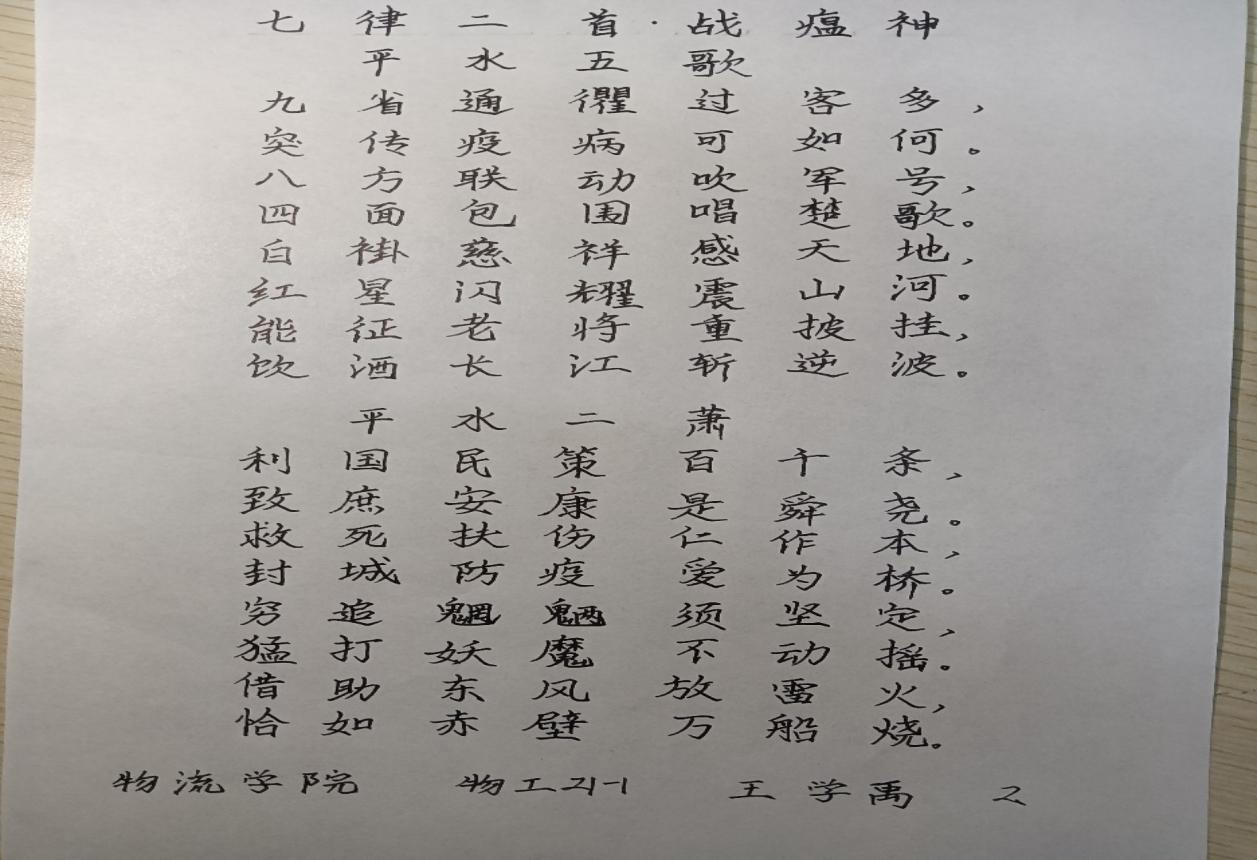 七律二首·战瘟神
平水五歌
九省通衢过客多，
突传疫病可如何。
八方联动吹军号，
四面包围唱楚歌。
白褂慈祥感天地，
红星闪耀震山河。
能征老将重披挂，
饮酒长江斩逆波。
平水二萧
利国民策百千条，
致庶安康是舜尧。
救死扶伤仁作本，
封城防疫爱为桥。
穷追魍魉须坚定，
猛打妖魔不动摇。
借助东风放雷火，
恰如赤壁万船烧。
物流学院 物工21-1 王学禹 2